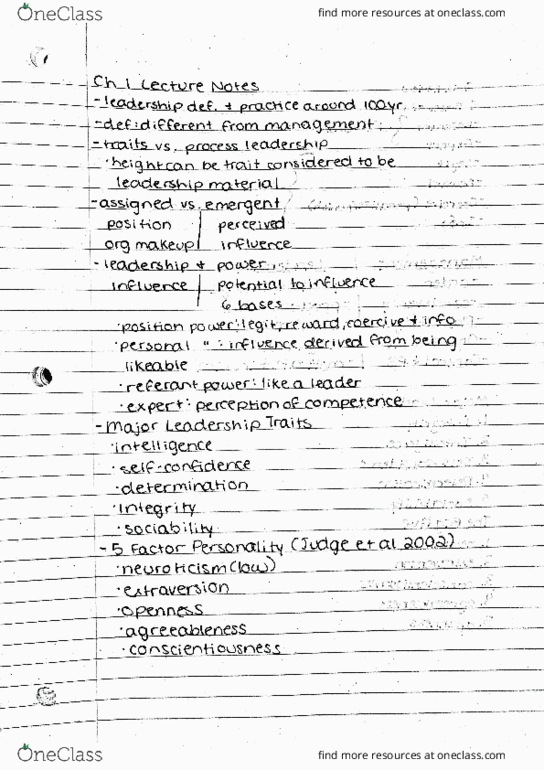 OneClass
find more resources at oneclass.com
Ch 1 Lecture Notes
- leadership def. + practice around 100yr
- def: different from management
- traits vs. process leadership
· height can be trait considered to be
leadership material
- assigned vs. emergent
position | perceived
org makeup | influence
- leadership + power
influence | potential to influence
6 bases
· position power: legit, reward, coercive + info
· personal " : influence derived from being
likeable
· referant power: like a leader
· expert: perception of competence
- Major Leadership Traits
· intelligence
· self-confidence
· determination
· Integrity
· sociability
- 5 Factor Personality (Judge et al 2002)
· neuroticism (low)
· extraversion
· openness
· agreeableness
· conscientiousness
OneClass
find more resources at oneclass.com